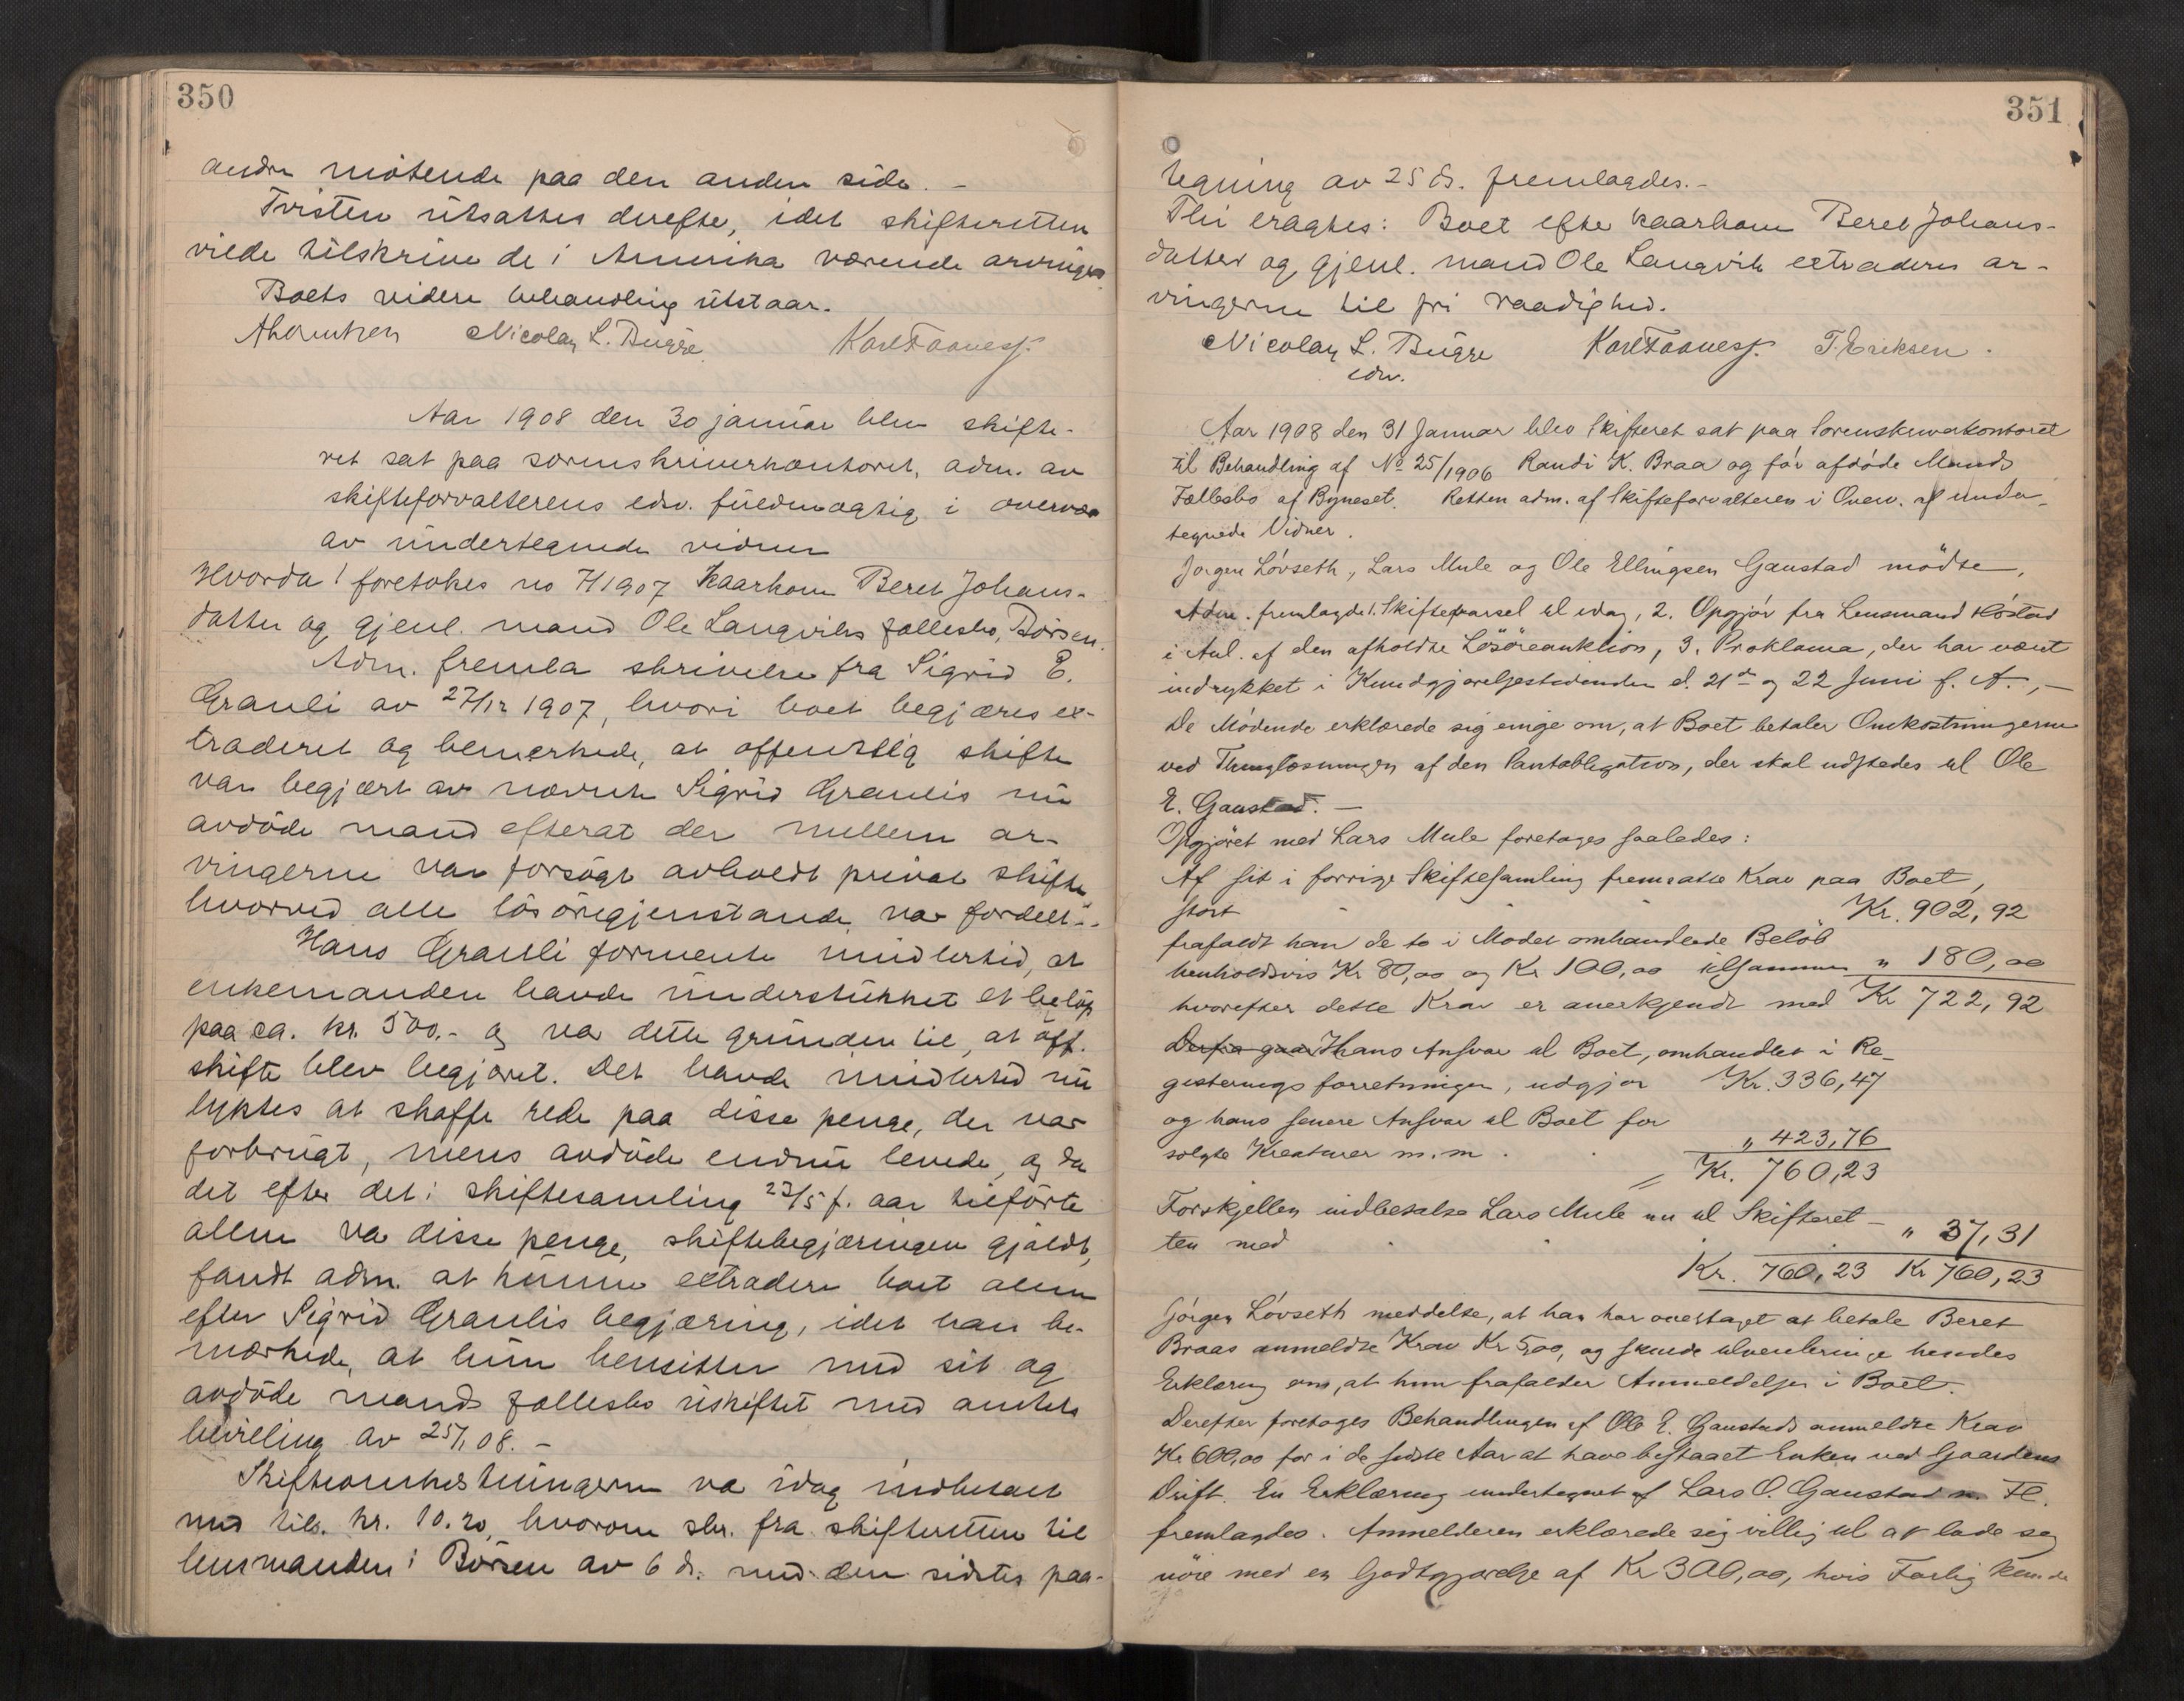 350
andre møtende paa den anden side. -
Tvisten utsattes derefter, idet skifteretten
vilde tilskrive de i Amerika værende arvinger
Boets videre behandling utstaar.
Nicolay L. Bugge Karl Faanes
Aar 1908 den 30 januar blev skifte-
ret sat paa sorenskriverkontoret, adm. av
skifteforvalterens edsv. fuldmægtig i overvær
av undertegnede vidner
Hvorda! foretokes no 7/1907 Kaarkone Beret Johans-
datter og gjenl. mand Ole Langviks fællesbo, Børsen.
Adm. fremla skrivelse fra Sigrid E.
Grauli av 27/12 1907, hvori boet begjæres ex-
traderet og bemerkede, at offentlig skifte
var begjært av nævnte Sigrid Graulis nu
avdøde mand efterat der mellem ar-
vingerne var forsøgt avholdt privat skifte
hvorved alle løsøregjenstande var fordelt..
Hans Grauli formente imidlertid, at
enkemanden havde understukket et beløp
paa ca. kr. 500.- og var dette grunden til, at off.
skifte blev begjæret. Det havde imidlertid nu
lyktes at skaffe rede paa disse penge, der var
forbrugt, mens avdøde endnu levede, og da
det efter det i skiftesamling 23/5 f. aar tilførte
alene var disse penge, skiftebegjæringen gjaldt,
fandt adm. at kunne extradere boet alene
efter Sigrid Graulis begjæring, idet han be-
mærkede, at hun hensitter med sit og
avdøde mands fællesbo uskiftet med amtets
bevilling av 25/1 08. -
Skifteomkostningerne var idag indbetalt
med tils. kr. 10.20, hvorom skr. fra skifteretten til
lensmanden i Børsen av 6 ds. med den sidstes paa-
351
tegning av 25 ds. fremlagdes.-
Thi eragtes: Boet efter kaarkone Beret Johans-
datter og gjenl. mand Ole Langvik extraderes ar-
vingerne til fri raadighed.
Nicolay L. Bugge Karl Faanes T. Eriksen.
edsv.
Aar 1908 den 31 Januar blev Skifteret sat paa Sorenskriverkontoret
til Behandling af No 25/1906 Randi K. Braa og før afdøde Mands
Fællesbo af Bynæset. Retten adm. af Skifteforvalteren i Overv. af under-
tegnede Vidner.
Jørgen Løvseth, Lars Mule og Ole Ellingsen Gaustad mødte,
Adm. fremlagde 1. Skiftevarsel til idag, 2. Opgjør fra Lensmand Høstad
i Anl. af den afholdte Løsøreauktion, 3. Proklama, der har været
indrykket i Kundgjørelsestidenden d. 21de og 22 Juni f. A., -
De Mødende erklærede sig enige om, at Boet betaler Omkostningerne
ved Thinglæsningen af den Pantobligation, der skal udstedes til Ole
E. Gaustad. -
Opgjøret med Lars Mule foretages saaledes:
Af sit i forrige Skiftesamling fremsatte Krav paa Boet,
stort Kr. 902,92
frafaldt han de to i Mødet omhandlede Beløb
henholdsvis Kr 80,00 og Kr 100,00 tilsammen " 180,00
hvorefter dette Krav er anerkjendt med Kr 722,92
Derfra gaar Hans Ansvar til Boet, omhandlet i Re-
gistreringsforretningen, udgjør Kr. 336,47
og hans senere Ansvar til Boet for
solgte Kreaturer m.m. " 423,76
= Kr. 760,23
Forskjellen indbetalte Lars Mule nu til Skifteret-
ten med " 37,31
Kr. 760,23 Kr 760,23
Jørgen Løvseth meddelte, at han har overtaget at betale Beret
Braas anmeldte Krav Kr 5,00, og skulde tilveiebringe hendes
Erklæring om, at hun frafalder Anmeldelsen i Boet.
Derefter foretages Behandlingen af Ole E. Gaustads anmeldte Krav
Kr 600,00 for i de sidste Aar at have bistaaet Enken ved Gaardens
Drift. En Erklæring undertegnet af Lars O. Gaustad m. Fl.
fremlagdes. Anmelderen erklærede sig villig til at lade sig
nøie med en Godtgjørelse af Kr 300,00, hvis Forlig kunde